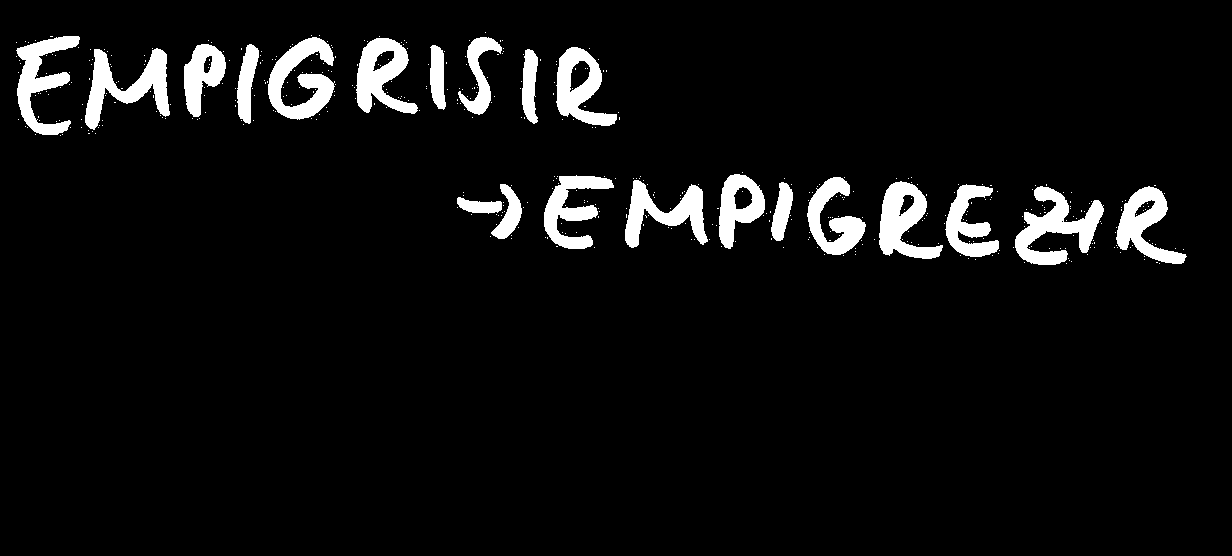 EMPIGRISIR
→ EMPIGREZIR